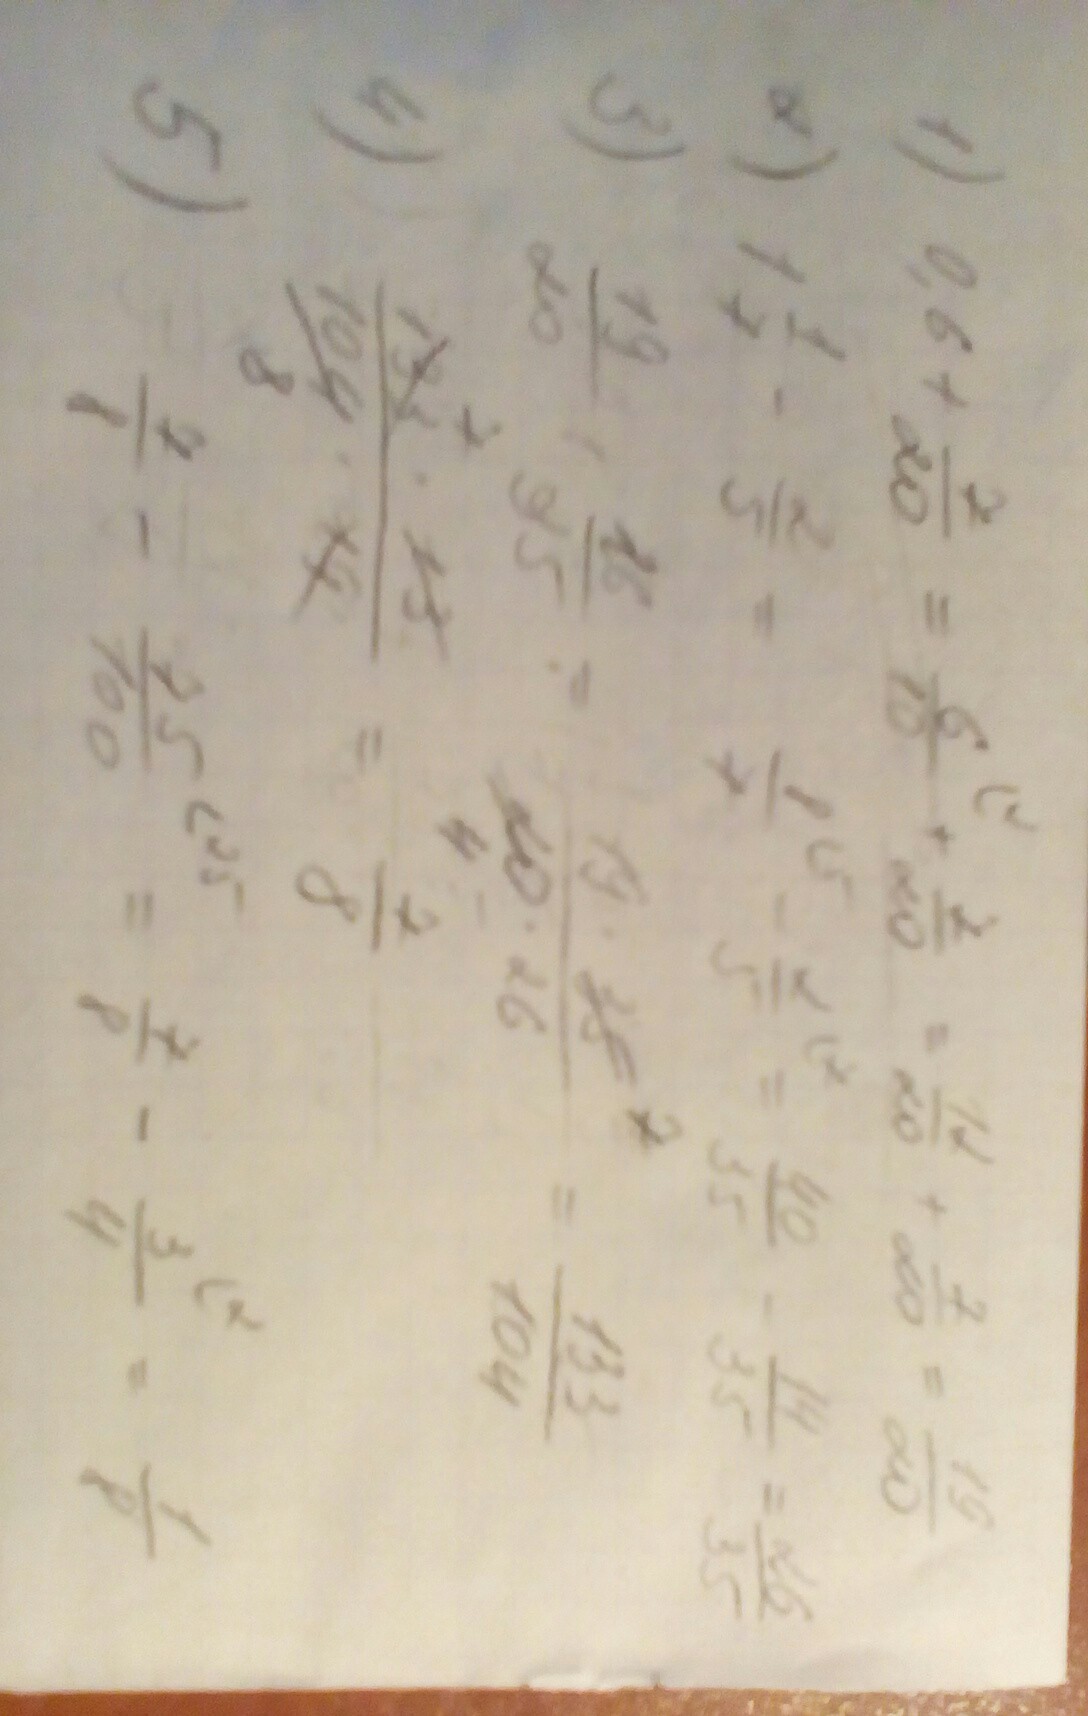 1) 0,6 + 7/20 = 6/10 (2 + 7/20 = 12/20 + 7/20 = 19/20
2) 1 1/7 - 2/5 = 8/7 (5 - 2/5 (7 = 40/35 - 14/35 = 26/35
3) 19/20 : 26/35 = 19 · 35 7 / 20 4 · 26 = 133/104
4) 133 7 · 15 / 104 8 · 15 = 7/8
5) 7/8 - 75/100 (25 = 7/8 - 3/4 (2 = 1/8